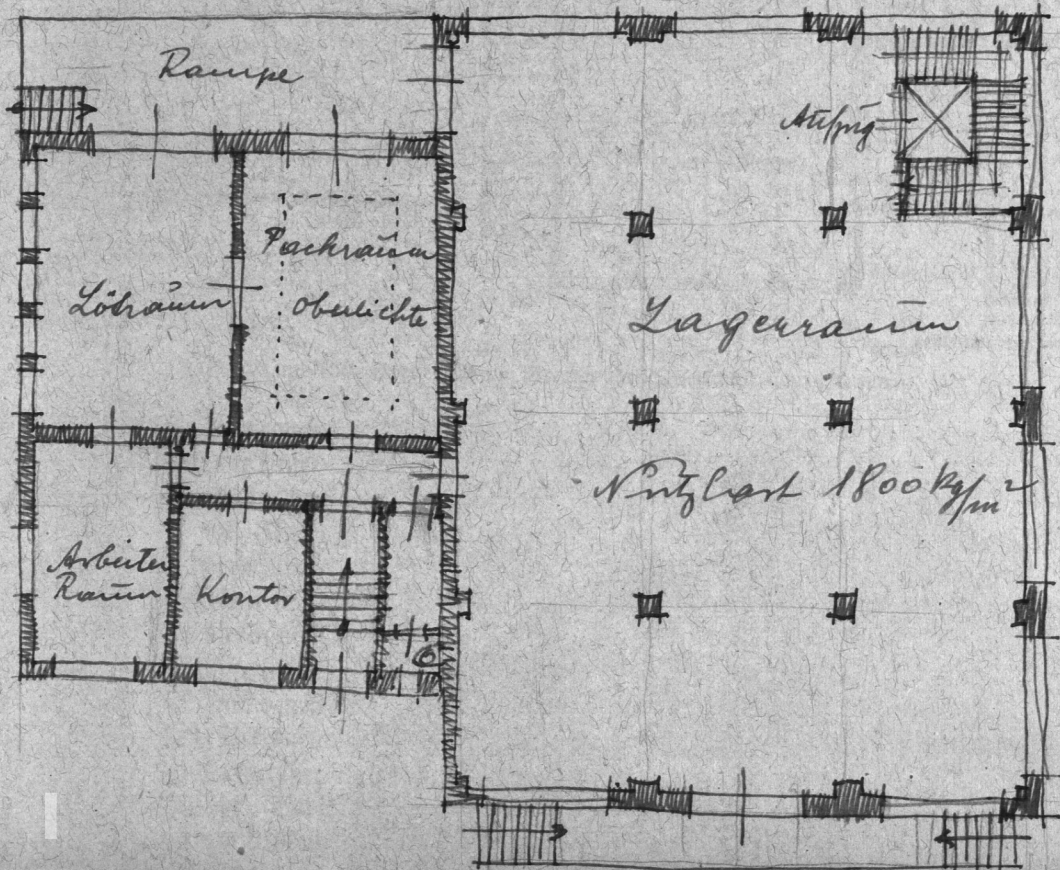 Rampe
Aufzug
Packraum
Oberlichte
Löträum
Lagerraum
Nutzlast 1800 kg/m²
Arbeiter
Raum
Kontor